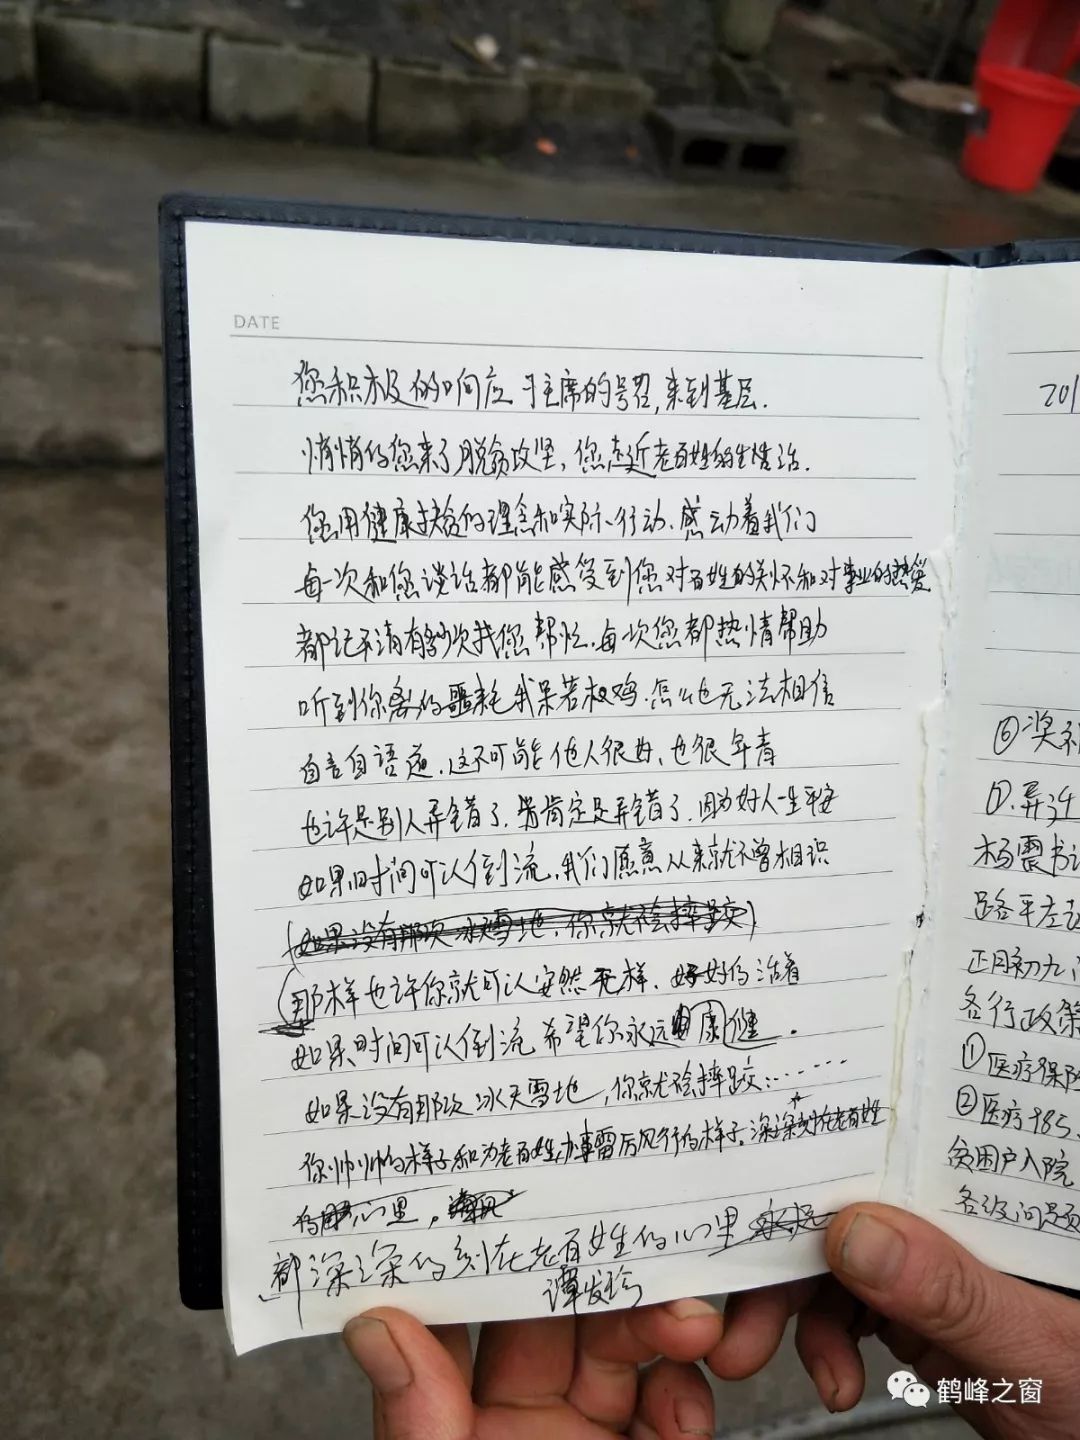 DATE
您积极的响应习主席的号召,来到基层.
悄悄的您来了脱贫攻坚,您走近老百姓的生活.
您用健康扶贫的理念和实际行动.感动着我们
每一次和您谈话都能感受到您对百姓的关怀和对事业的热爱
都记不清有多少次找您帮忙.每次您都热情帮助
听到你离的噩耗我呆若木鸡.怎么也无法相信
自言自语道.这不可能他人很好,也很年青
也许是别人弄错了.肯定是弄错了.因为好人一生平安
如果时间可以倒流,我们愿意从来就不曾相识
(如果没有那次冰天雪地,你就不会摔跤)
那样也许你就可以安然无样、好好的活着
如果时间可以倒流 希望你永远康健.
如果没有那次冰天雪地,你就不会摔跤......
你帅帅的样子和为老百姓办事雷厉风行的样子。深深刻在老百姓
的心里,
都深深的刻在老百姓的心里 永远
谭发珍
201
⑥奖补
⑦.异迁
杨震书记
路平左
正月初九
各行政策
①医疗保险
②医疗985.
贫困户入院
各级问题
鹤峰之窗